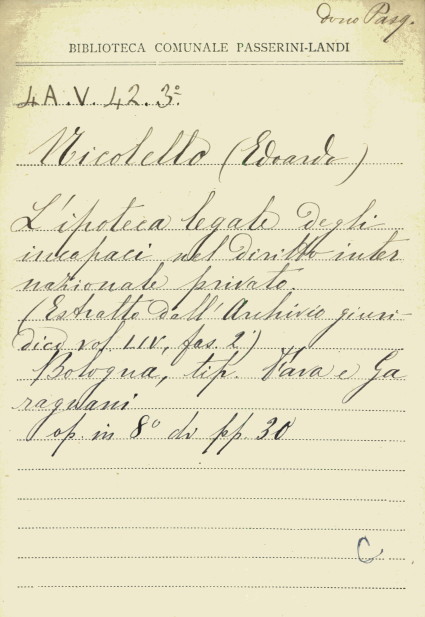 dono Pasq.
BIBLIOTECA COMUNALE PASSERINI-LANDI
4A.V.42.3°.
Nicolello (Edoardo)
L'ipoteca legale degli
incapaci nel diritto inter
nazionale privato.
(Estratto dall'Archivio giuri-
dico vol. LIV, fas. 2°)
Bologna, tip. Fava e Ga
ragnani
op. in 8° di pp. 30
C